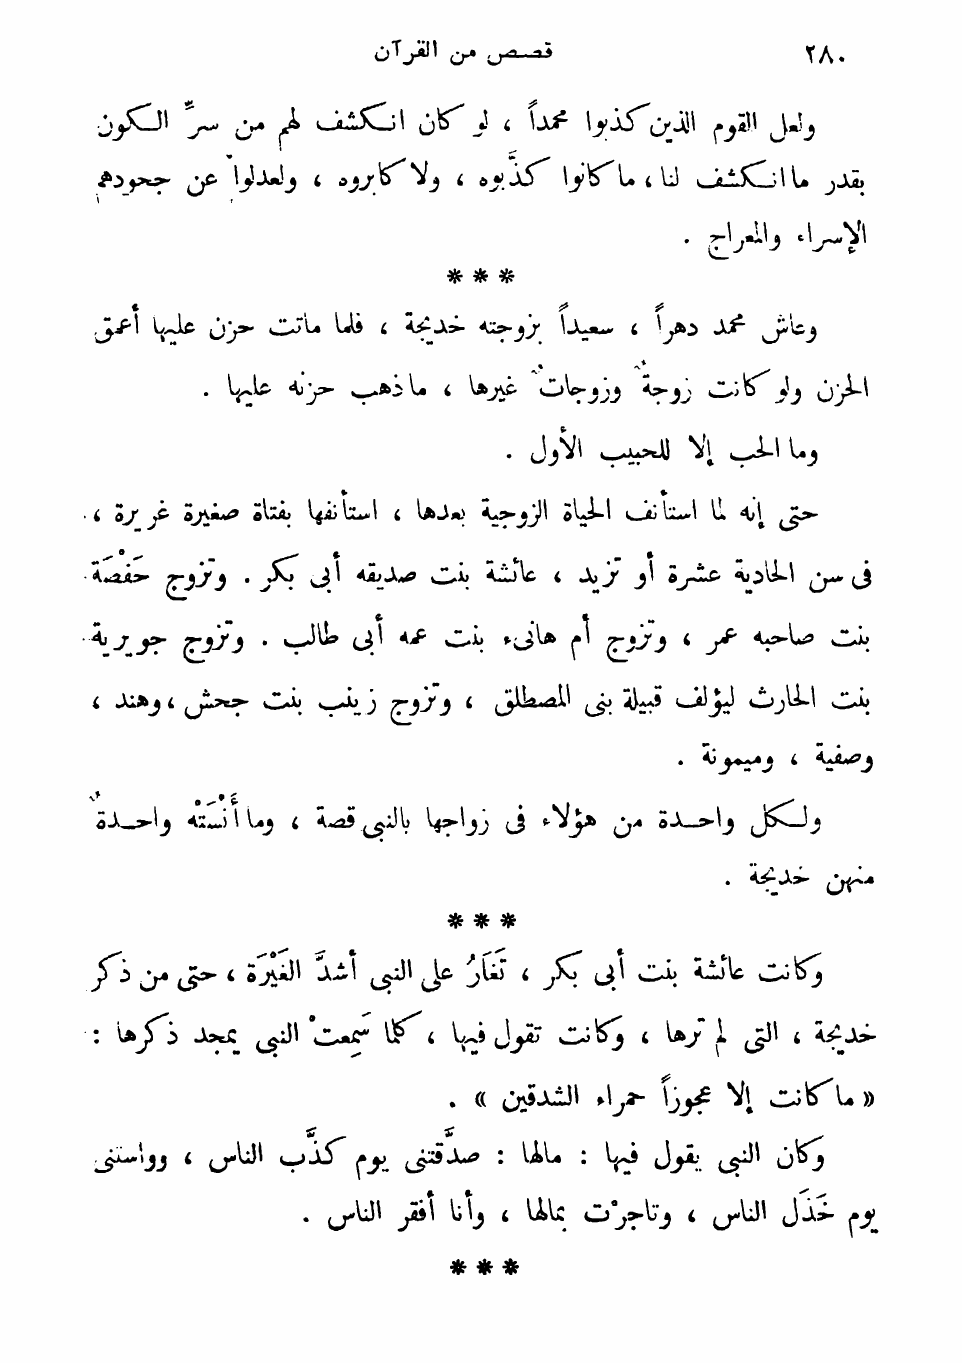 ٢٨٠ قصص من القرآن
ولعل القوم الذين كذبوا محمداً ، لو كان انكشف لهم من سرِّ الكون
بقدر ما انكشف لنا ، ما كانوا كذَّبوه ، ولا كابروه ، ولعدلوا عن جحودهم
الإسراء والمعراج .
* * *
وعاش محمد دهراً ، سعيداً بزوجته خديجة ، فلما ماتت حزن عليها أعمق
الحزن ولو كانت زوجةٌ وزوجاتٌ غيرها ، ما ذهب حزنه عليها .
وما الحب إلا للحبيب الأول .
حتى إنه لما استأنف الحياة الزوجية بعدها ، استأنفها بفتاة صغيرة غريرة ،
فى سن الحادية عشرة أو تزيد ، عائشة بنت صديقه أبى بكر . وتزوج حَفْصَة
بنت صاحبه عمر ، وتزوج أم هانىء بنت عمه أبى طالب . وتزوج جويرية
بنت الحارث ليؤلف قبيلة بنى المصطلق ، وتزوج زينب بنت جحش ، وهند ،
وصفية ، وميمونة .
ولكل واحدة من هؤلاء فى زواجها بالنبى قصة ، وما أَنْسَتْه واحدةٌ
منهن خديجة .
* * *
وكانت عائشة بنت أبى بكر ، تَغَارُ على النبى أشدَّ الغَيْرَة ، حتى من ذكر
خديجة ، التى لم ترها ، وكانت تقول فيها ، كلما سَمِعتْ النبى يمجد ذكرها :
« ما كانت إلا عجوزاً حمراء الشدقين » .
وكان النبى يقول فيها : مالها : صدَّقتنى يوم كذَّب الناس ، وواستنى
يوم خَذَل الناس ، وتاجرْت بمالها ، وأنا أفقر الناس .
* * *